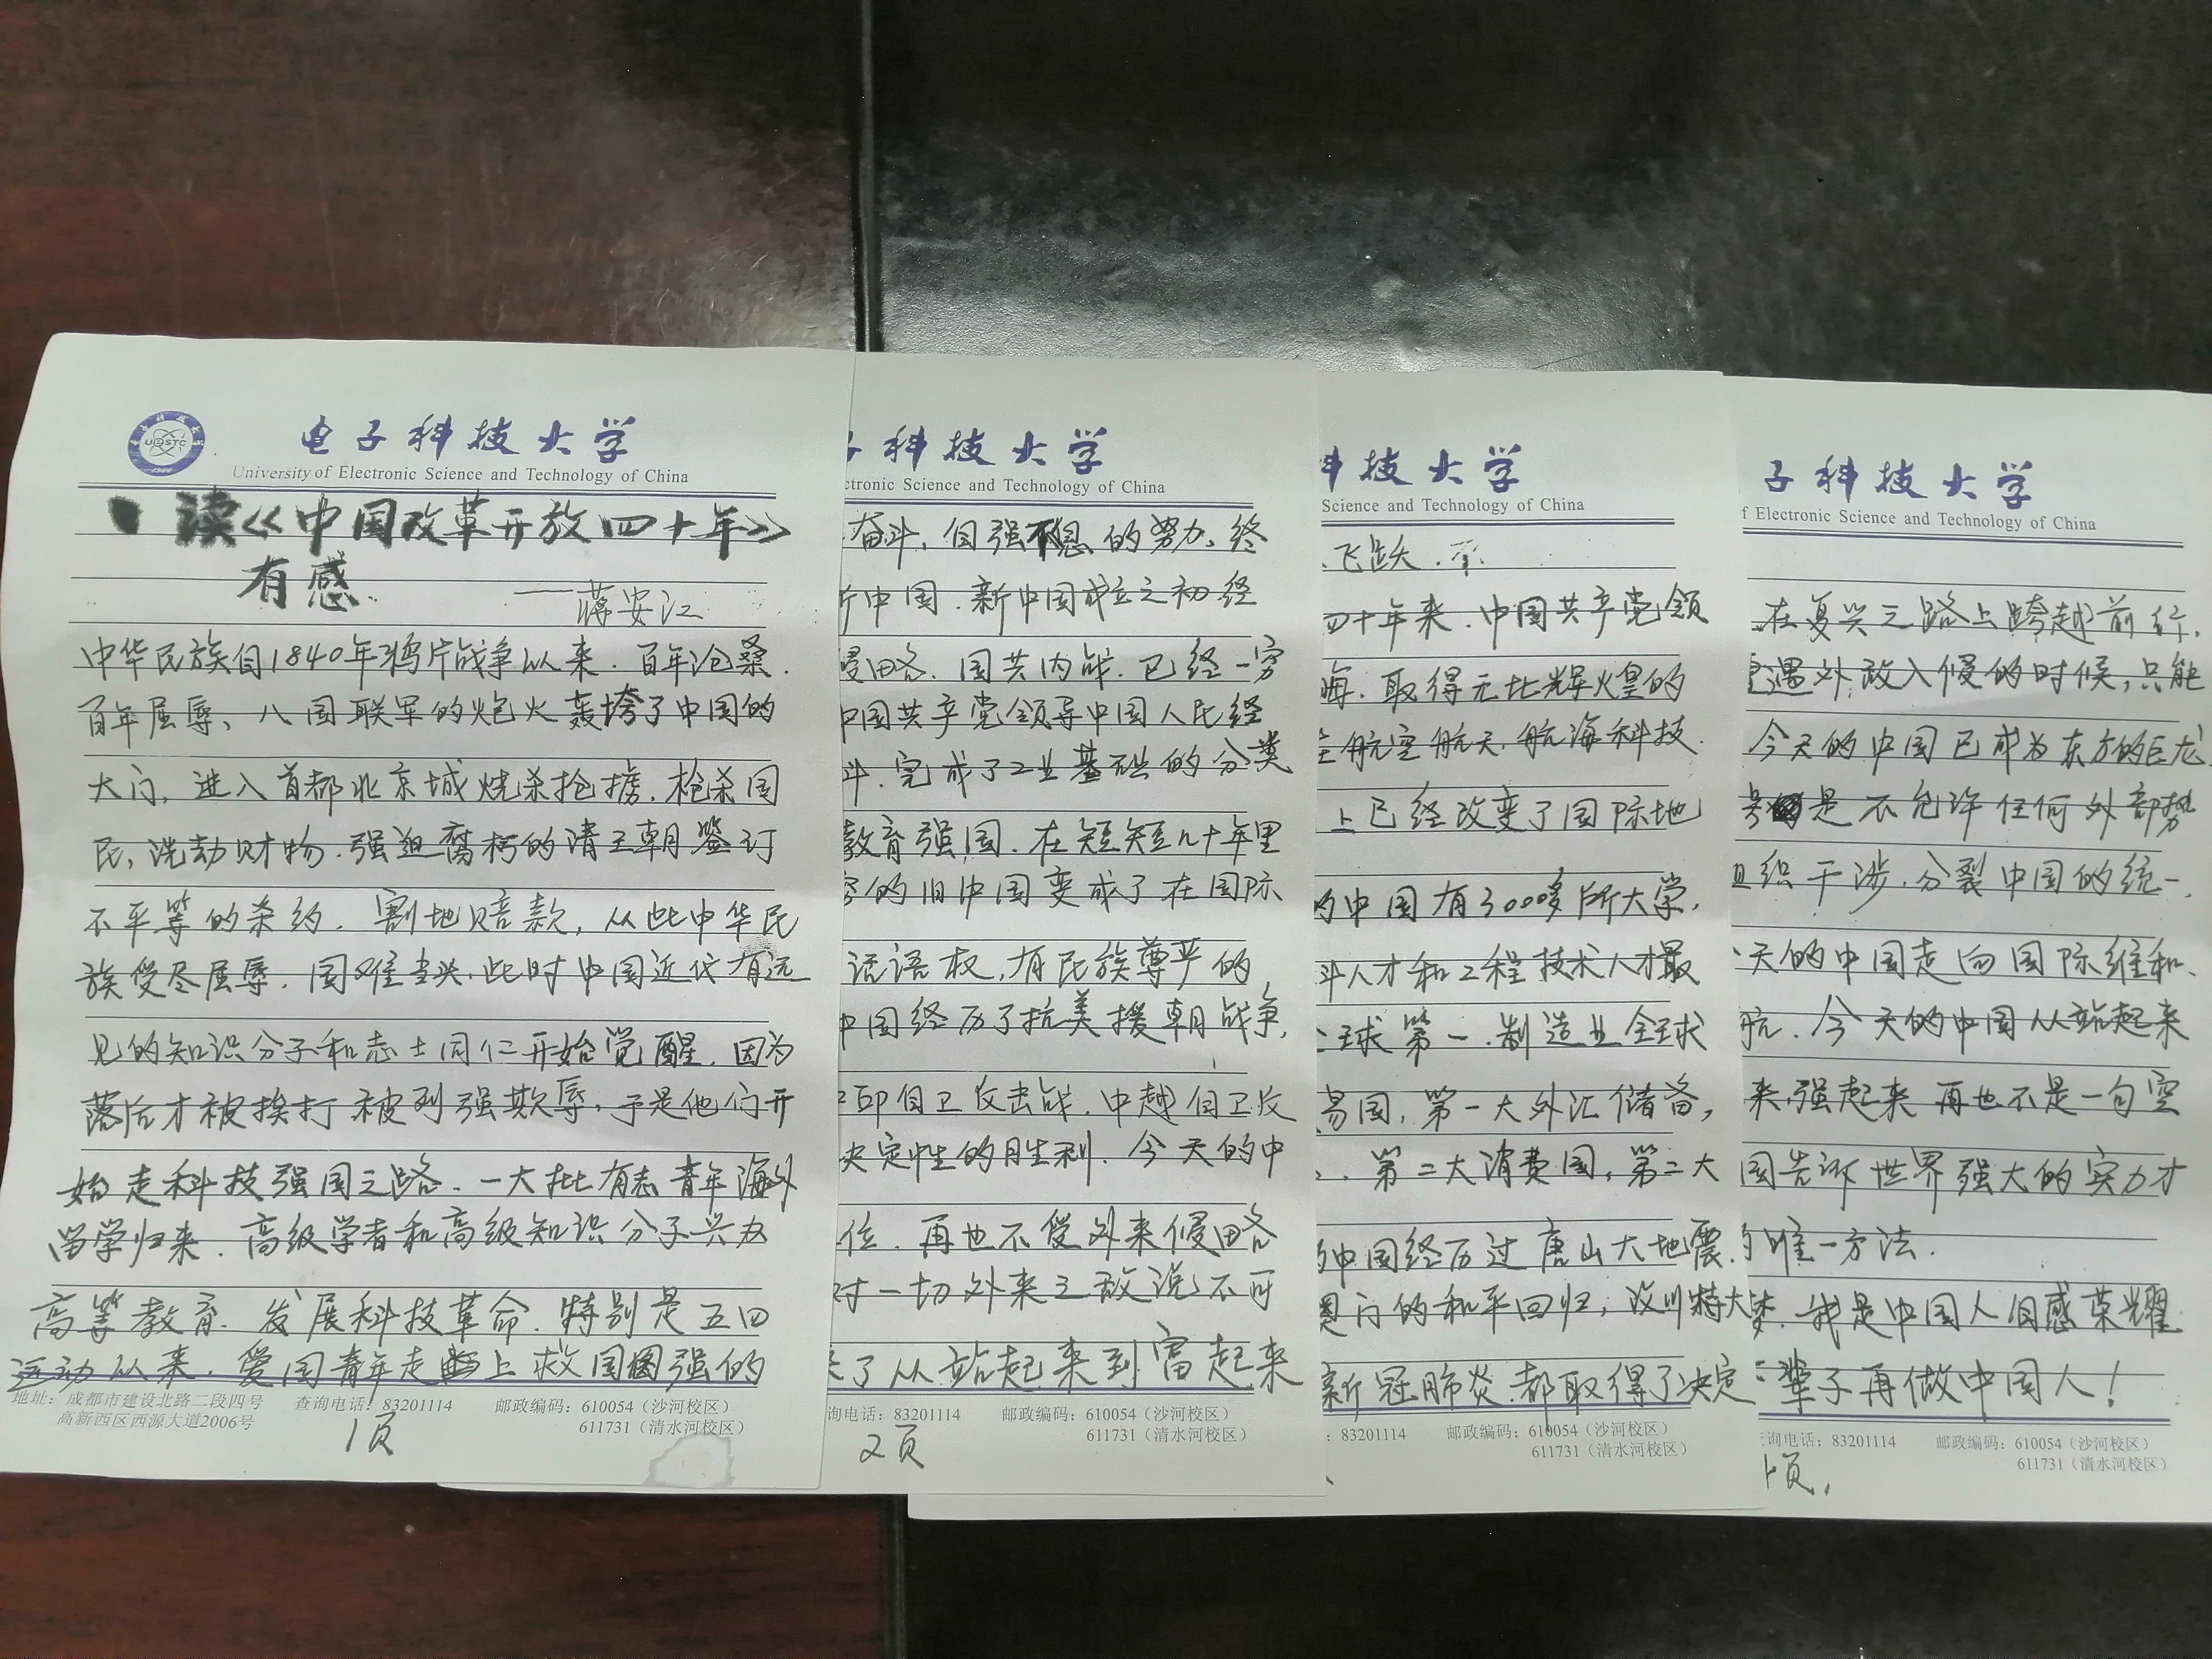 电子科技大学
University of Electronic Science and Technology of China
读《中国改革开放四十年》
有感
——蒋安江
中华民族自1840年鸦片战争以来.百年沧桑.
百年屈辱、八国联军的炮火轰垮了中国的
大门,进入首都北京城烧杀抢掳.枪杀国
民,洗劫财物.强迫腐朽的清王朝签订
不平等的条约.割地赔款,从此中华民
族受尽屈辱.国难当头.此时中国近代有远
见的知识分子和志士同仁开始觉醒.因为
落后才被挨打被列强欺辱,于是他们开
始走科技强国之路.一大批有志青年海外
留学归来.高级学者和高级知识分子兴办
高等教育.发展科技革命.特别是五四
运动以来.爱国青年走上救国图强的
地址:成都市建设北路二段四号
高新西区西源大道2006号
查询电话:83201114
邮政编码:610054(沙河校区)
611731(清水河校区)
1页
科技大学
ctronic Science and Technology of China
奋斗,自强不息的努力.终
中国.新中国成立之初经
侵略.国共内战.已经一穷
中国共产党领导中国人民经
斗.完成了工业基础的分类
教育强国.在短短几十年里
的旧中国变成了在国际
话语权,有民族尊严的
中国经历了抗美援朝战争,
印自卫反击战.中越自卫反
决定性的胜利.今天的中
位.再也不受外来侵略
对一切外来之敌说不可
了从站起来到富起来
询电话:83201114
邮政编码:610054(沙河校区)
611731(清水河校区)
2页
技大学
Science and Technology of China
飞跃.
四十年来.中国共产党领
.取得无比辉煌的
航空航天,航海科技.
上已经改变了国际地
的中国有3000多所大学,
人才和工程技术人才最
球第一.制造业全球
易国,第一大外汇储备,
第二大消费国,第二大
中国经历过唐山大地震.
门的和平回归,汶川特大
新冠肺炎.都取得了决定
:83201114
邮政编码:610054(沙河校区)
611731(清水河校区)
子科技大学
f Electronic Science and Technology of China
在复兴之路上跨越前行.
遇外敌入侵的时候,只能
今天的中国已成为东方的巨龙
是不允许任何外部势
组织干涉.分裂中国的统一.
天的中国走向国际维和、
航.今天的中国从站起来
来,强起来再也不是一句空
国告诉世界强大的实力才
的唯一方法.
梦.我是中国人自感荣耀
辈子再做中国人!
询电话:83201114
邮政编码:610054(沙河校区)
611731(清水河校区)
页.